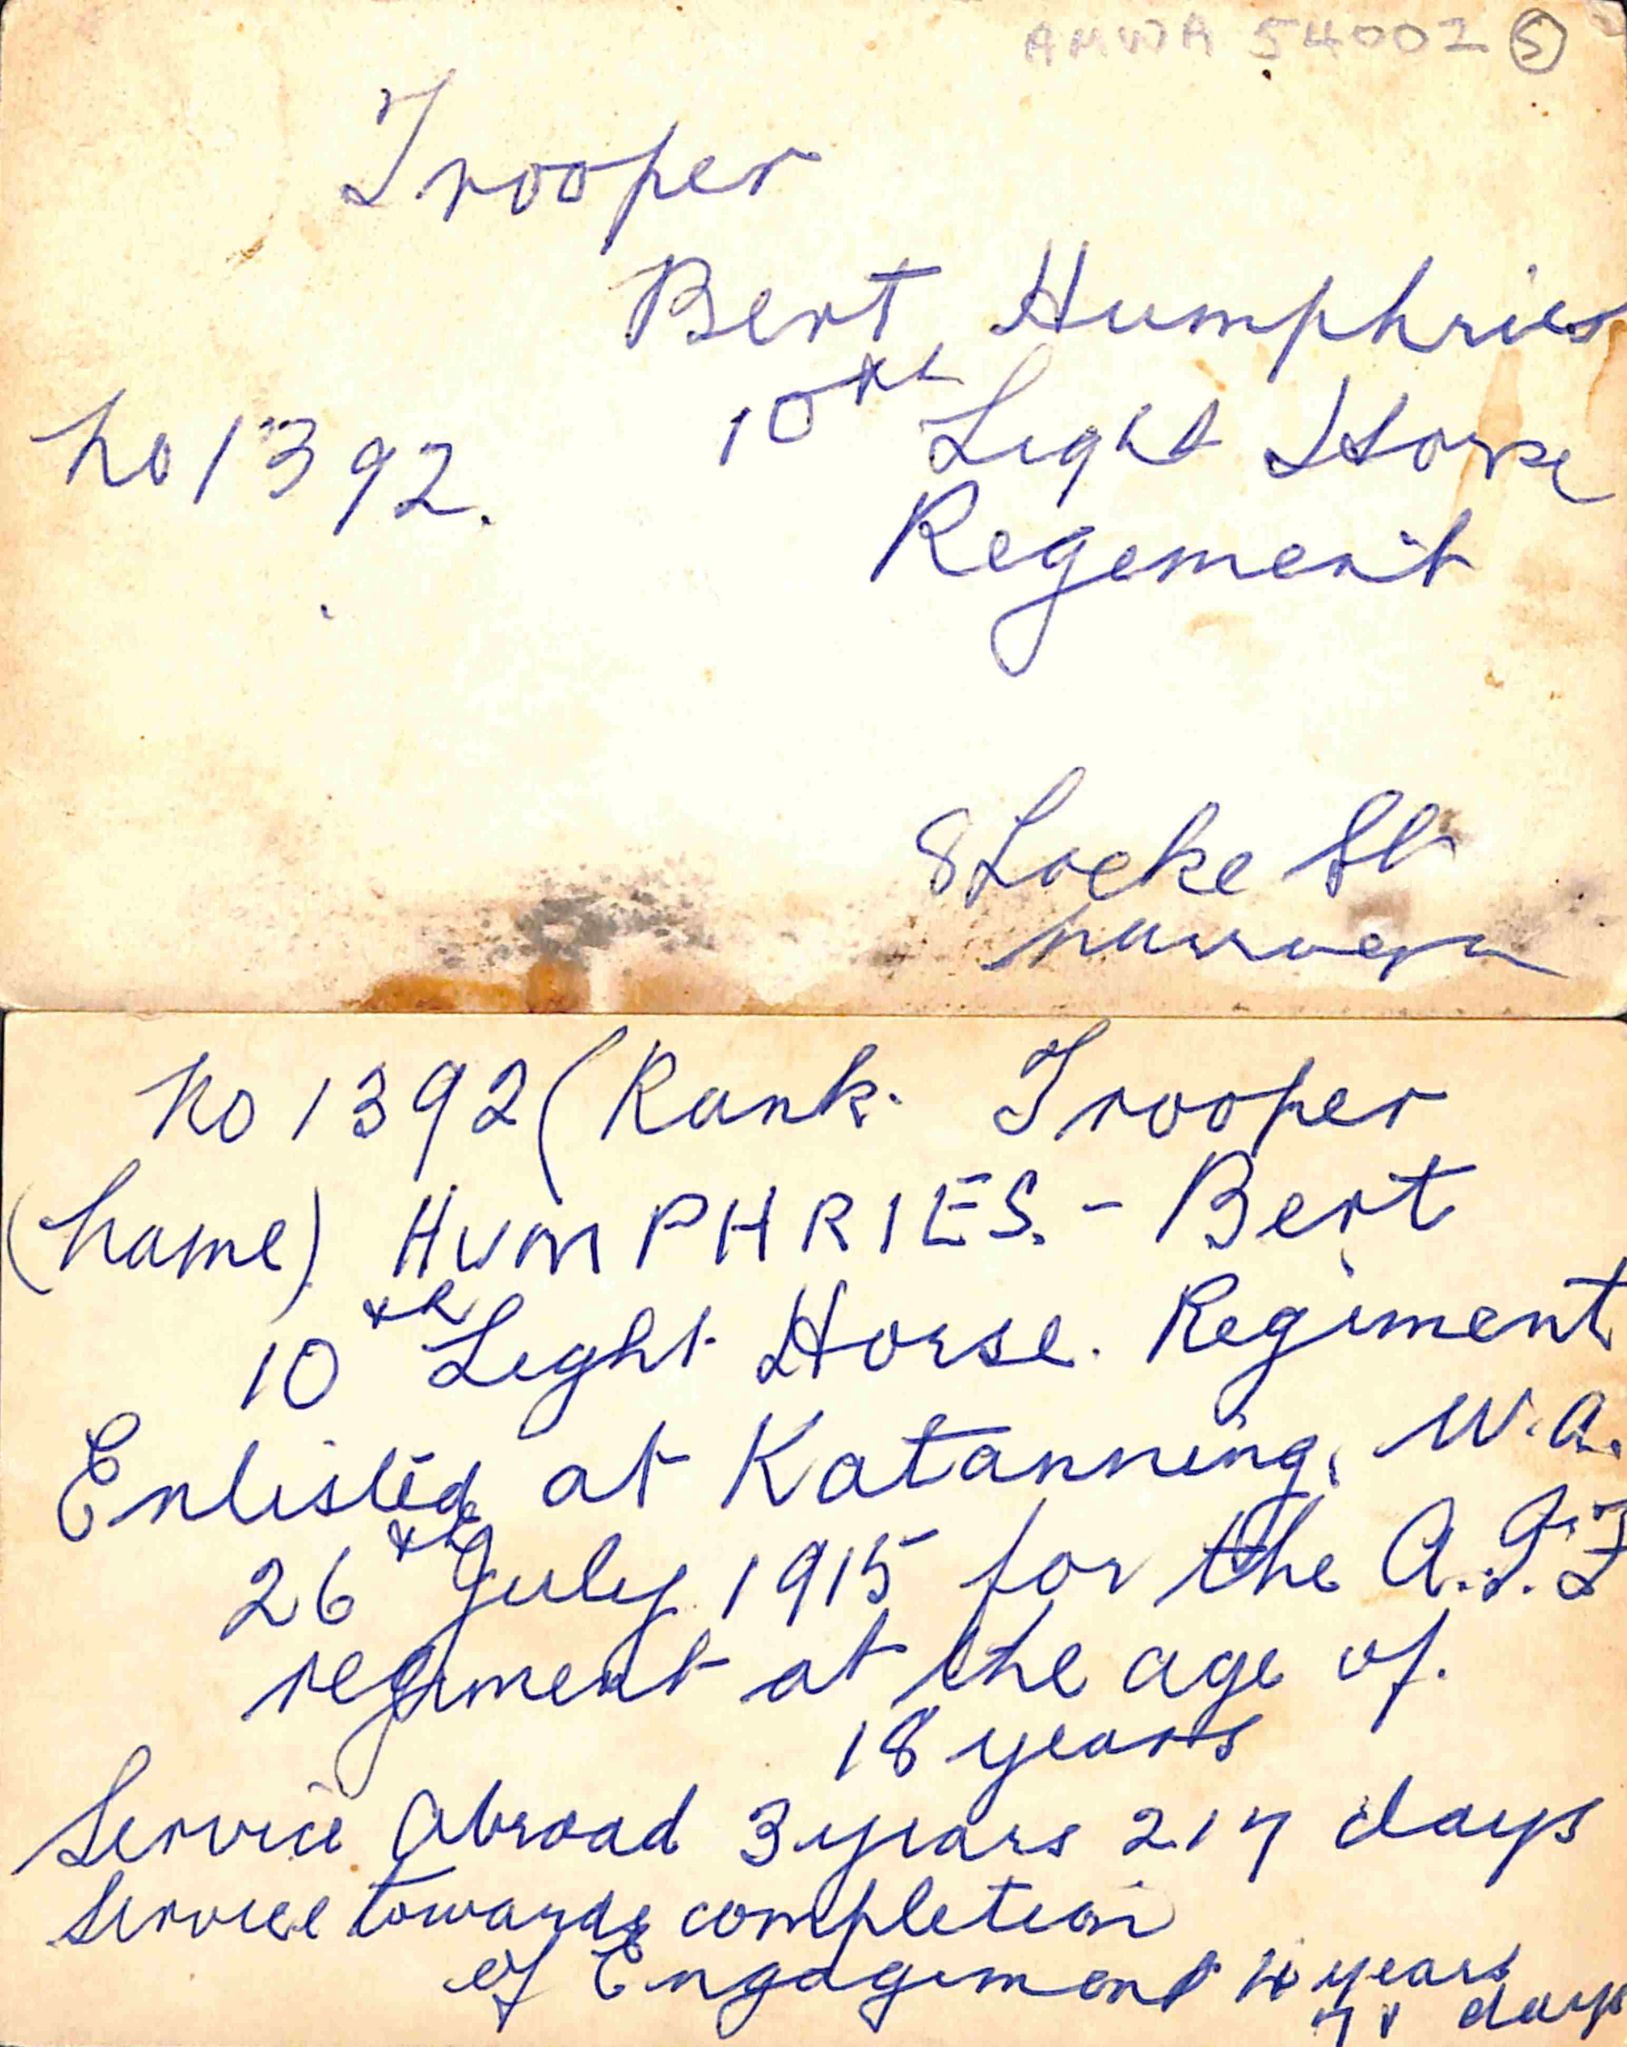 AMWA 54002 5
Trooper
Bert Humphries
10th Light Horse
No 1392.
Regement
8 Locke St
No 1392 (Rank. Trooper
(Name) HUMPHRIES. - Bert
10th Light Horse. Regiment
Enlisted at Katanning, W.A.
26th July 1915 for the A.I.F
regiment at the age of.
18 years
Service Abroad 3 years 217 days
Service towards completion
of Engagement 4 years
71 days